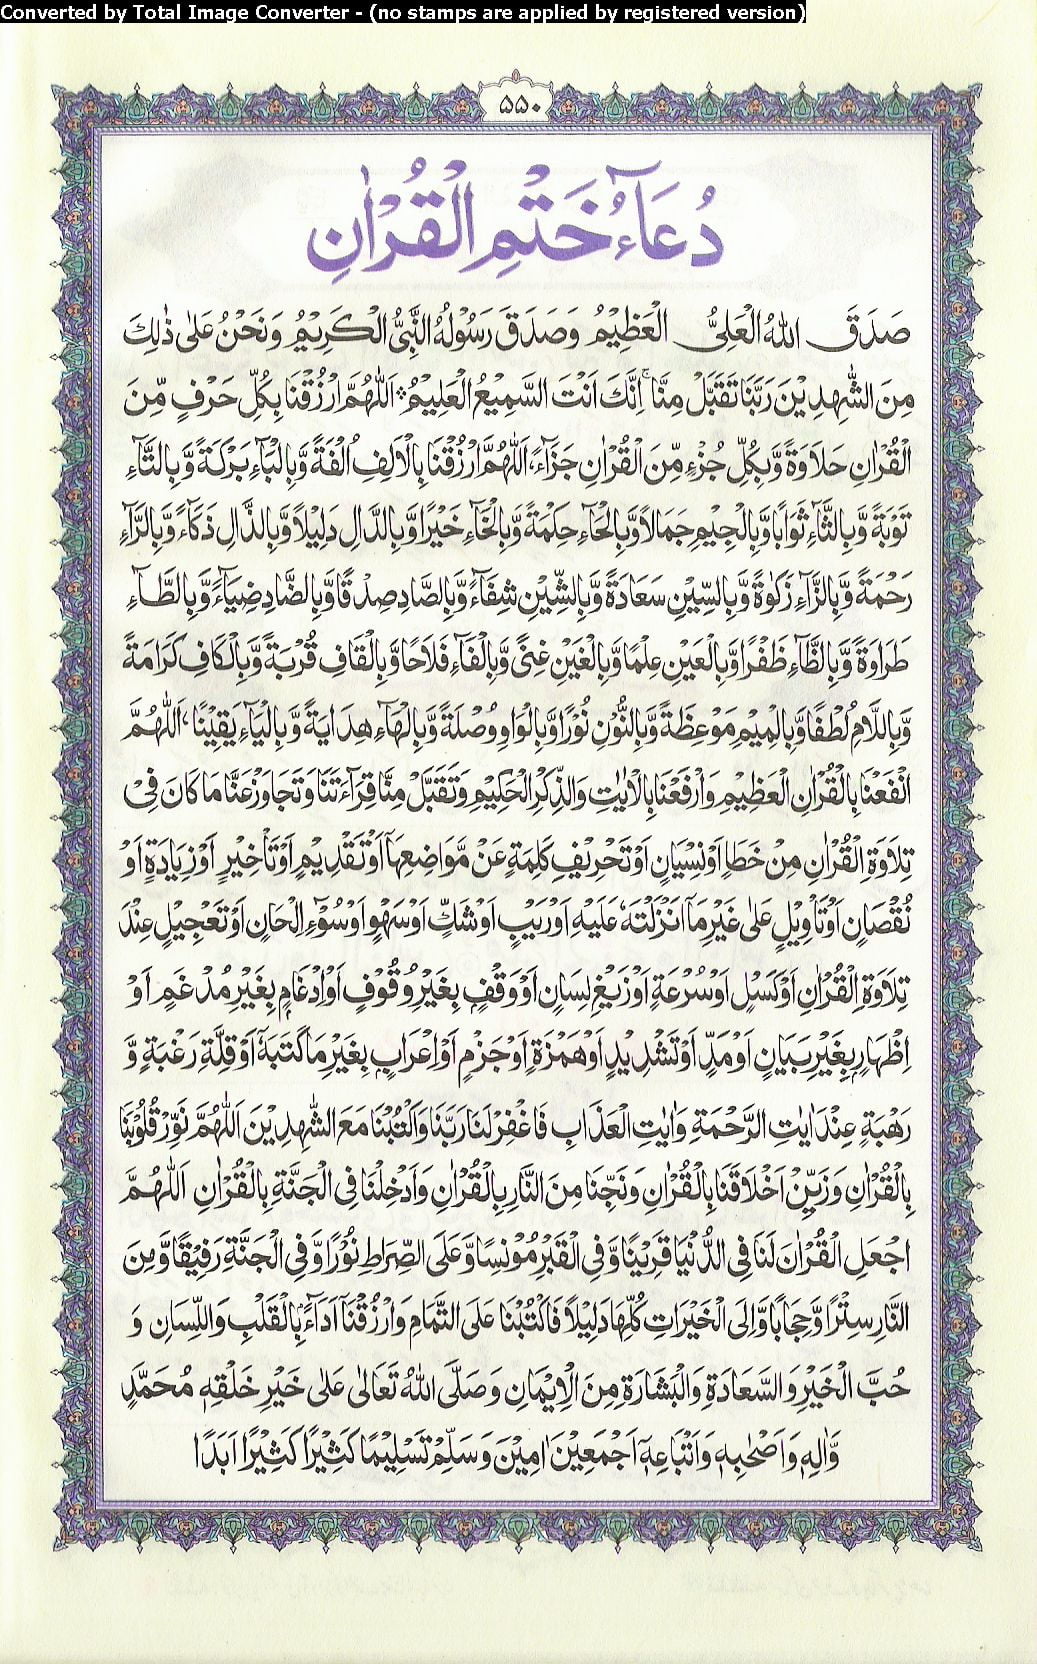 Converted by Total Image Converter - (no stamps are applied by registered version)
۵۵۰
دُعَآءُ خَتْمِ الْقُرْاٰنِ
صَدَقَ اللّٰهُ الْعَلِیُّ الْعَظِیْمُ وَصَدَقَ رَسُوْلُهُ النَّبِیُّ الْکَرِیْمُ وَنَحْنُ عَلٰی ذٰلِكَ
مِنَ الشّٰهِدِیْنَ رَبَّنَا تَقَبَّلْ مِنَّا ۚ اِنَّكَ اَنْتَ السَّمِیْعُ الْعَلِیْمُ ۞ اَللّٰهُمَّ ارْزُقْنَا بِکُلِّ حَرْفٍ مِّنَ
الْقُرْاٰنِ حَلَاوَةً وَّبِکُلِّ جُزْءٍ مِّنَ الْقُرْاٰنِ جَزَآءً، اَللّٰهُمَّ ارْزُقْنَا بِالْاَلِفِ اُلْفَةً وَّبِالْبَآءِ بَرَکَةً وَّبِالتَّآءِ
تَوْبَةً وَّبِالثَّآءِ ثَوَابًا وَّبِالْجِیْمِ جَمَالًا وَّبِالْحَآءِ حِکْمَةً وَّبِالْخَآءِ خَیْرًا وَّبِالدَّالِ دَلِیْلًا وَّبِالذَّالِ ذَکَآءً وَّبِالرَّآءِ
رَحْمَةً وَّبِالزَّآءِ زَکٰوةً وَّبِالسِّیْنِ سَعَادَةً وَّبِالشِّیْنِ شِفَآءً وَّبِالصَّادِ صِدْقًا وَّبِالضَّادِ ضِیَآءً وَّبِالطَّآءِ
طَرَاوَةً وَّبِالظَّآءِ ظَفْرًا وَّبِالْعَیْنِ عِلْمًا وَّبِالْغَیْنِ غِنًی وَّبِالْفَآءِ فَلَاحًا وَّبِالْقَافِ قُرْبَةً وَّبِالْکَافِ کَرَامَةً
وَّبِاللَّامِ لُطْفًا وَّبِالْمِیْمِ مَوْعِظَةً وَّبِالنُّوْنِ نُوْرًا وَّبِالْوَاوِ وُصْلَةً وَّبِالْهَآءِ هِدَایَةً وَّبِالْیَآءِ یَقِیْنًا، اَللّٰهُمَّ
انْفَعْنَا بِالْقُرْاٰنِ الْعَظِیْمِ وَارْفَعْنَا بِالْاٰیٰتِ وَالذِّکْرِ الْحَکِیْمِ وَتَقَبَّلْ مِنَّا قِرَآءَتَنَا وَتَجَاوَزْ عَنَّا مَا کَانَ فِیْ
تِلَاوَةِ الْقُرْاٰنِ مِنْ خَطَاٍ اَوْ نِسْیَانٍ اَوْ تَحْرِیْفِ کَلِمَةٍ عَنْ مَّوَاضِعِهَآ اَوْ تَقْدِیْمٍ اَوْ تَاْخِیْرٍ اَوْ زِیَادَةٍ اَوْ
نُقْصَانٍ اَوْ تَاْوِیْلٍ عَلٰی غَیْرِ مَآ اَنْزَلْتَهٗ عَلَیْهِ اَوْ رَیْبٍ اَوْ شَكٍّ اَوْ سَهْوٍ اَوْ سُوْٓءِ اِلْحَانٍ اَوْ تَعْجِیْلٍ عِنْدَ
تِلَاوَةِ الْقُرْاٰنِ اَوْ کَسَلٍ اَوْ سُرْعَةٍ اَوْ زَیْغِ لِسَانٍ اَوْ وَقْفٍ بِغَیْرِ وُقُوْفٍ اَوْ اِدْغَامٍ بِغَیْرِ مُدْغَمٍ اَوْ
اِظْهَارٍ بِغَیْرِ بَیَانٍ اَوْ مَدٍّ اَوْ تَشْدِیْدٍ اَوْ هَمْزَةٍ اَوْ جَزْمٍ اَوْ اِعْرَابٍ بِغَیْرِ مَا کَتَبَهٗٓ اَوْ قِلَّةِ رَغْبَةٍ وَّ
رَهْبَةٍ عِنْدَ اٰیٰتِ الرَّحْمَةِ وَاٰیٰتِ الْعَذَابِ فَاغْفِرْ لَنَا رَبَّنَا وَاکْتُبْنَا مَعَ الشّٰهِدِیْنَ اَللّٰهُمَّ نَوِّرْ قُلُوْبَنَا
بِالْقُرْاٰنِ وَزَیِّنْ اَخْلَاقَنَا بِالْقُرْاٰنِ وَنَجِّنَا مِنَ النَّارِ بِالْقُرْاٰنِ وَاَدْخِلْنَا فِی الْجَنَّةِ بِالْقُرْاٰنِ اَللّٰهُمَّ
اجْعَلِ الْقُرْاٰنَ لَنَا فِی الدُّنْیَا قَرِیْنًا وَّفِی الْقَبْرِ مُوْنِسًا وَّعَلَی الصِّرَاطِ نُوْرًا وَّفِی الْجَنَّةِ رَفِیْقًا وَّمِنَ
النَّارِ سِتْرًا وَّحِجَابًا وَّاِلَی الْخَیْرَاتِ کُلِّهَا دَلِیْلًا فَاکْتُبْنَا عَلَی التَّمَامِ وَارْزُقْنَآ اَدَآءً بِالْقَلْبِ وَاللِّسَانِ وَ
حُبَّ الْخَیْرِ وَالسَّعَادَةِ وَالْبَشَارَةِ مِنَ الْاِیْمَانِ وَصَلَّی اللّٰهُ تَعَالٰی عَلٰی خَیْرِ خَلْقِهٖ مُحَمَّدٍ
وَّاٰلِهٖ وَاَصْحٰبِهٖ وَاَتْبَاعِهٖٓ اَجْمَعِیْنَ اٰمِیْنَ وَسَلِّمْ تَسْلِیْمًا کَثِیْرًا کَثِیْرًا اَبَدًا